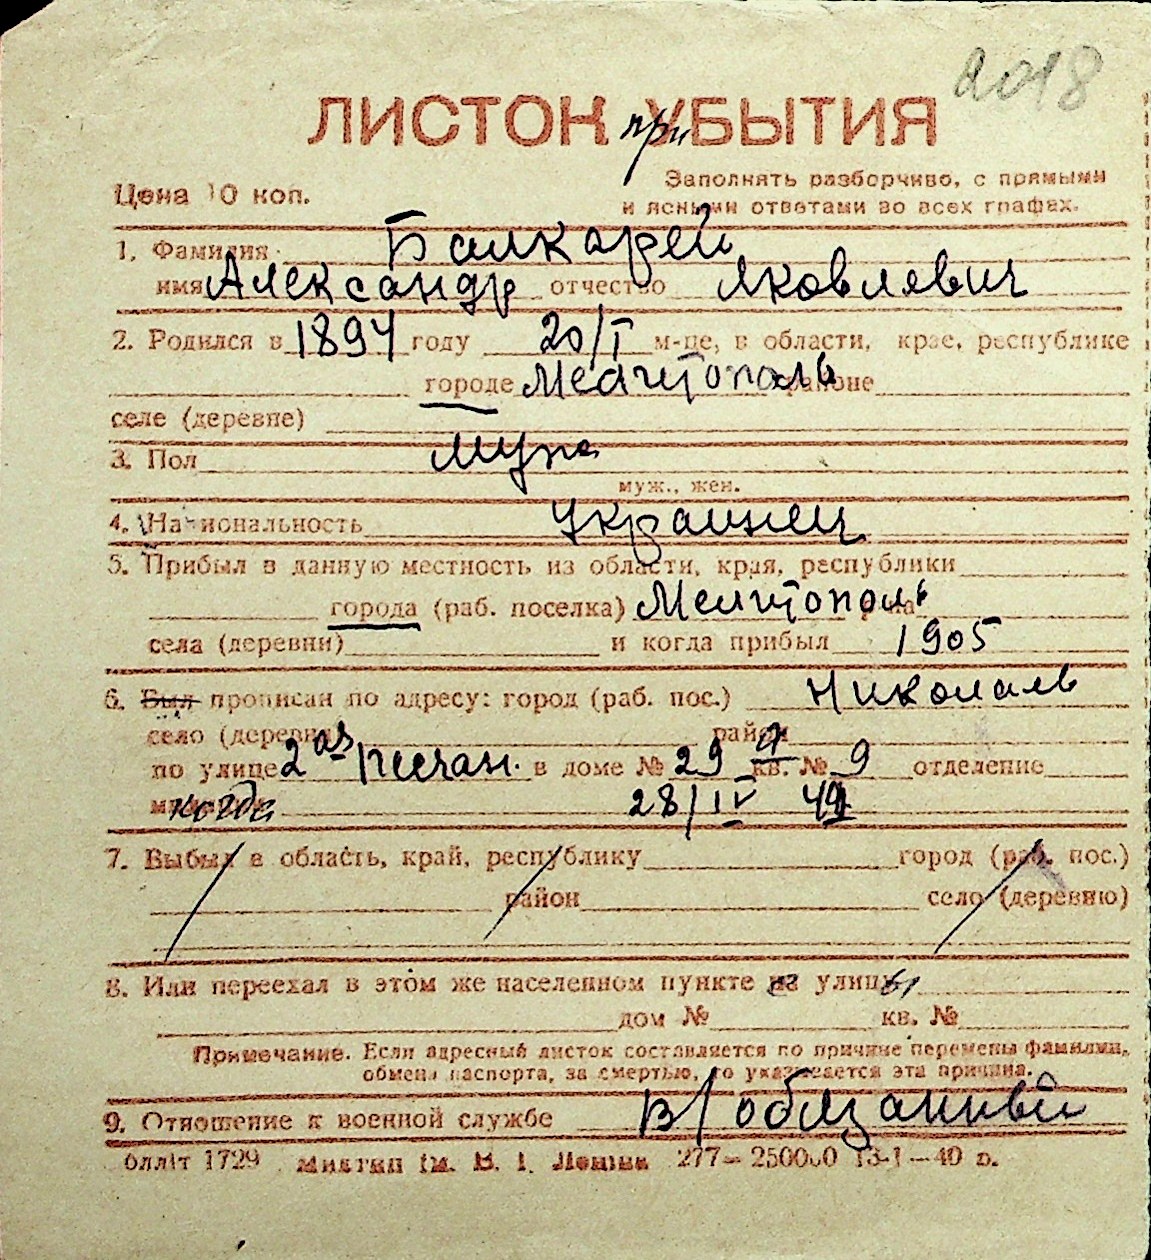 2018
ЛИСТОК приБЫТИЯ
Цена 10 коп.
Заполнять разборчиво, с прямыми
и ясными ответами во всех графах.
1. Фамилия Балкарей
имя Александр отчество Яковлевич
2. Родился в 1894 году 20/I м-це, в области, крае, республике
городе Мелитополь районе
селе (деревне)
3. Пол муж
муж., жен.
4. Национальность украинец
5. Прибыл в данную местность из области, края, республики
города (раб. поселка) Мелитополь р-на
села (деревни) и когда прибыл 1905
6. Был прописан по адресу: город (раб. пос.) Николаев
село (деревня) район
по улице 2ая Песчан. в доме № 29 а кв. № 9 отделение
когда 28/IV 44
7. Выбыл в область, край, республику город (раб. пос.)
район село (деревню)
8. Или переехал в этом же населенном пункте из улицы
дом № кв. №
Примечание. Если адресный листок составляется по причине перемены фамилии,
обмена паспорта, за смертью, то указывается эта причина.
9. Отношение к военной службе в/обязанный
блліт 1729 ім. В. І. Леніна 277—250000 13-1—40 р.